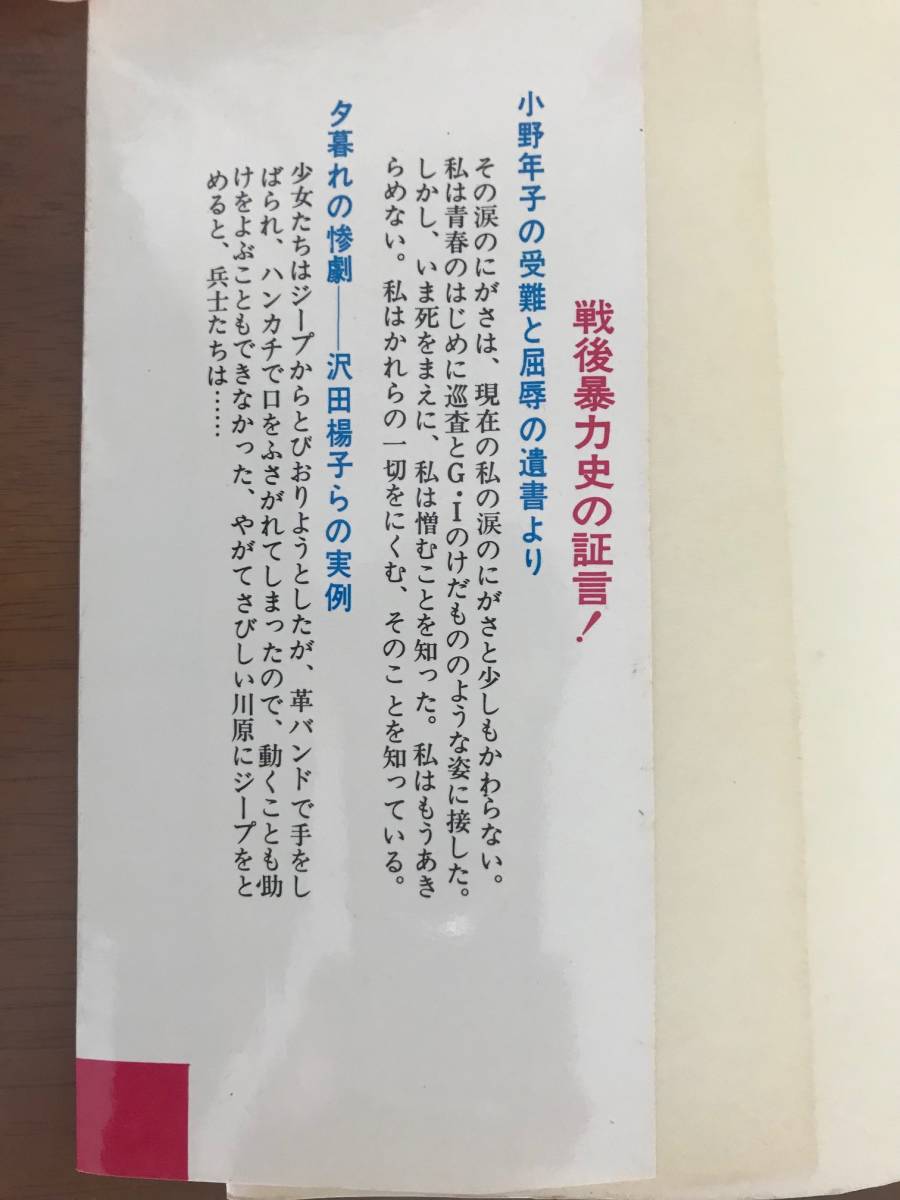 戦後暴力史の証言！
小野年子の受難と屈辱の遺書より
その涙のにがさは、現在の私の涙のにがさと少しもかわらない。
私は青春のはじめに巡査とG・Iのけだもののような姿に接した。
しかし、いま死をまえに、私は憎むことを知った。私はもうあき
らめない。私はかれらの一切をにくむ、そのことを知っている。
夕暮れの惨劇――沢田楊子らの実例
少女たちはジープからとびおりようとしたが、革バンドで手をし
ばられ、ハンカチで口をふさがれてしまったので、動くことも助
けをよぶこともできなかった、やがてさびしい川原にジープをと
めると、兵士たちは……